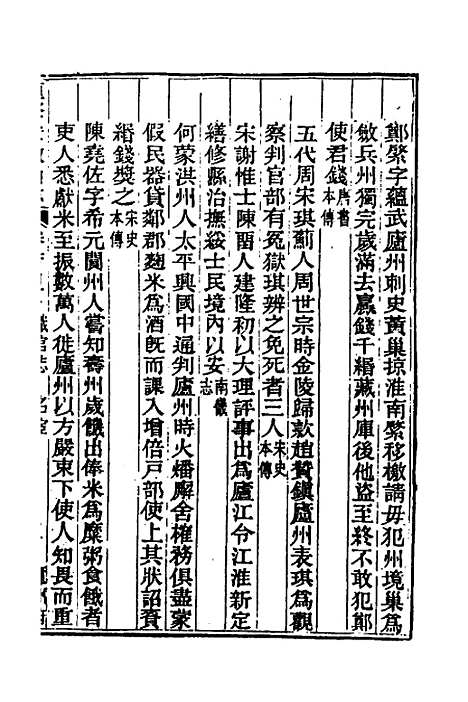 鄭綮字蘊武廬州刺史黃巢掠淮南綮移檄請毋犯州境巢爲
斂兵州獨完歲滿去贏錢千緡藏州庫後他盜至終不敢犯鄭
使君錢唐書本傳
五代周宋琪薊人周世宗時金陵歸款趙贊鎮廬州表琪爲觀
察判官部有冤獄琪辨之免死者三人宋史本傳
宋謝惟士陳留人建隆初以大理評事出爲廬江令江淮新定
繕修縣治撫綏士民境內以安南畿志
何蒙洪州人太平興國中通判廬州時火燔廨舍榷務俱盡蒙
假民器貸鄰郡麴米爲酒旣而課入增倍戶部使上其狀詔賚
緡錢獎之宋史本傳
陳堯佐字希元閬州人嘗知壽州歲饑出俸米爲糜粥食餓者
吏人悉獻米至振數萬人徙廬州以方嚴束下使人知畏而重
職官志 名宦